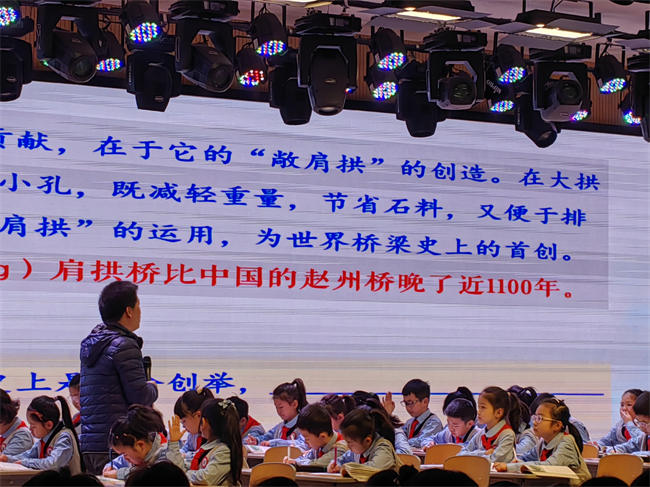 贡献，在于它的“敞肩拱”的创造。在大拱
小孔，既减轻重量，节省石料，又便于排
肩拱”的运用，为世界桥梁史上的首创。
g）肩拱桥比中国的赵州桥晚了近1100年。
史上是 个创举，